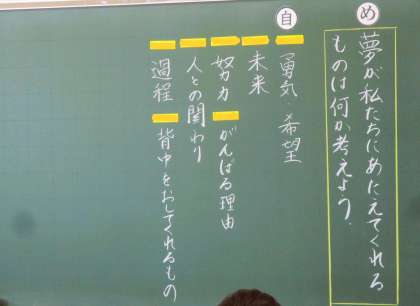 め
夢が私たちにあたえてくれる
ものは何か考えよう。
自
勇気・希望
未来
努力
がんばる理由
人との関わり
過程
背中をおしてくれるもの